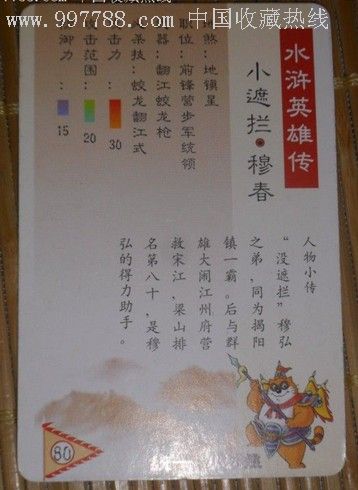 www.997788.com 中国收藏热线
水浒英雄传
小遮拦·穆春
煞：地镇星
位：前锋营步军统领
器：翻江蛟龙枪
杀技：蛟龙翻江式
击力：30
击范围：20
御力：15
人物小传
“没遮拦”穆弘
之弟，同为揭阳
镇一霸。后与群
雄大闹江州府营
救宋江，梁山排
名第八十，是穆
弘的得力助手。
80